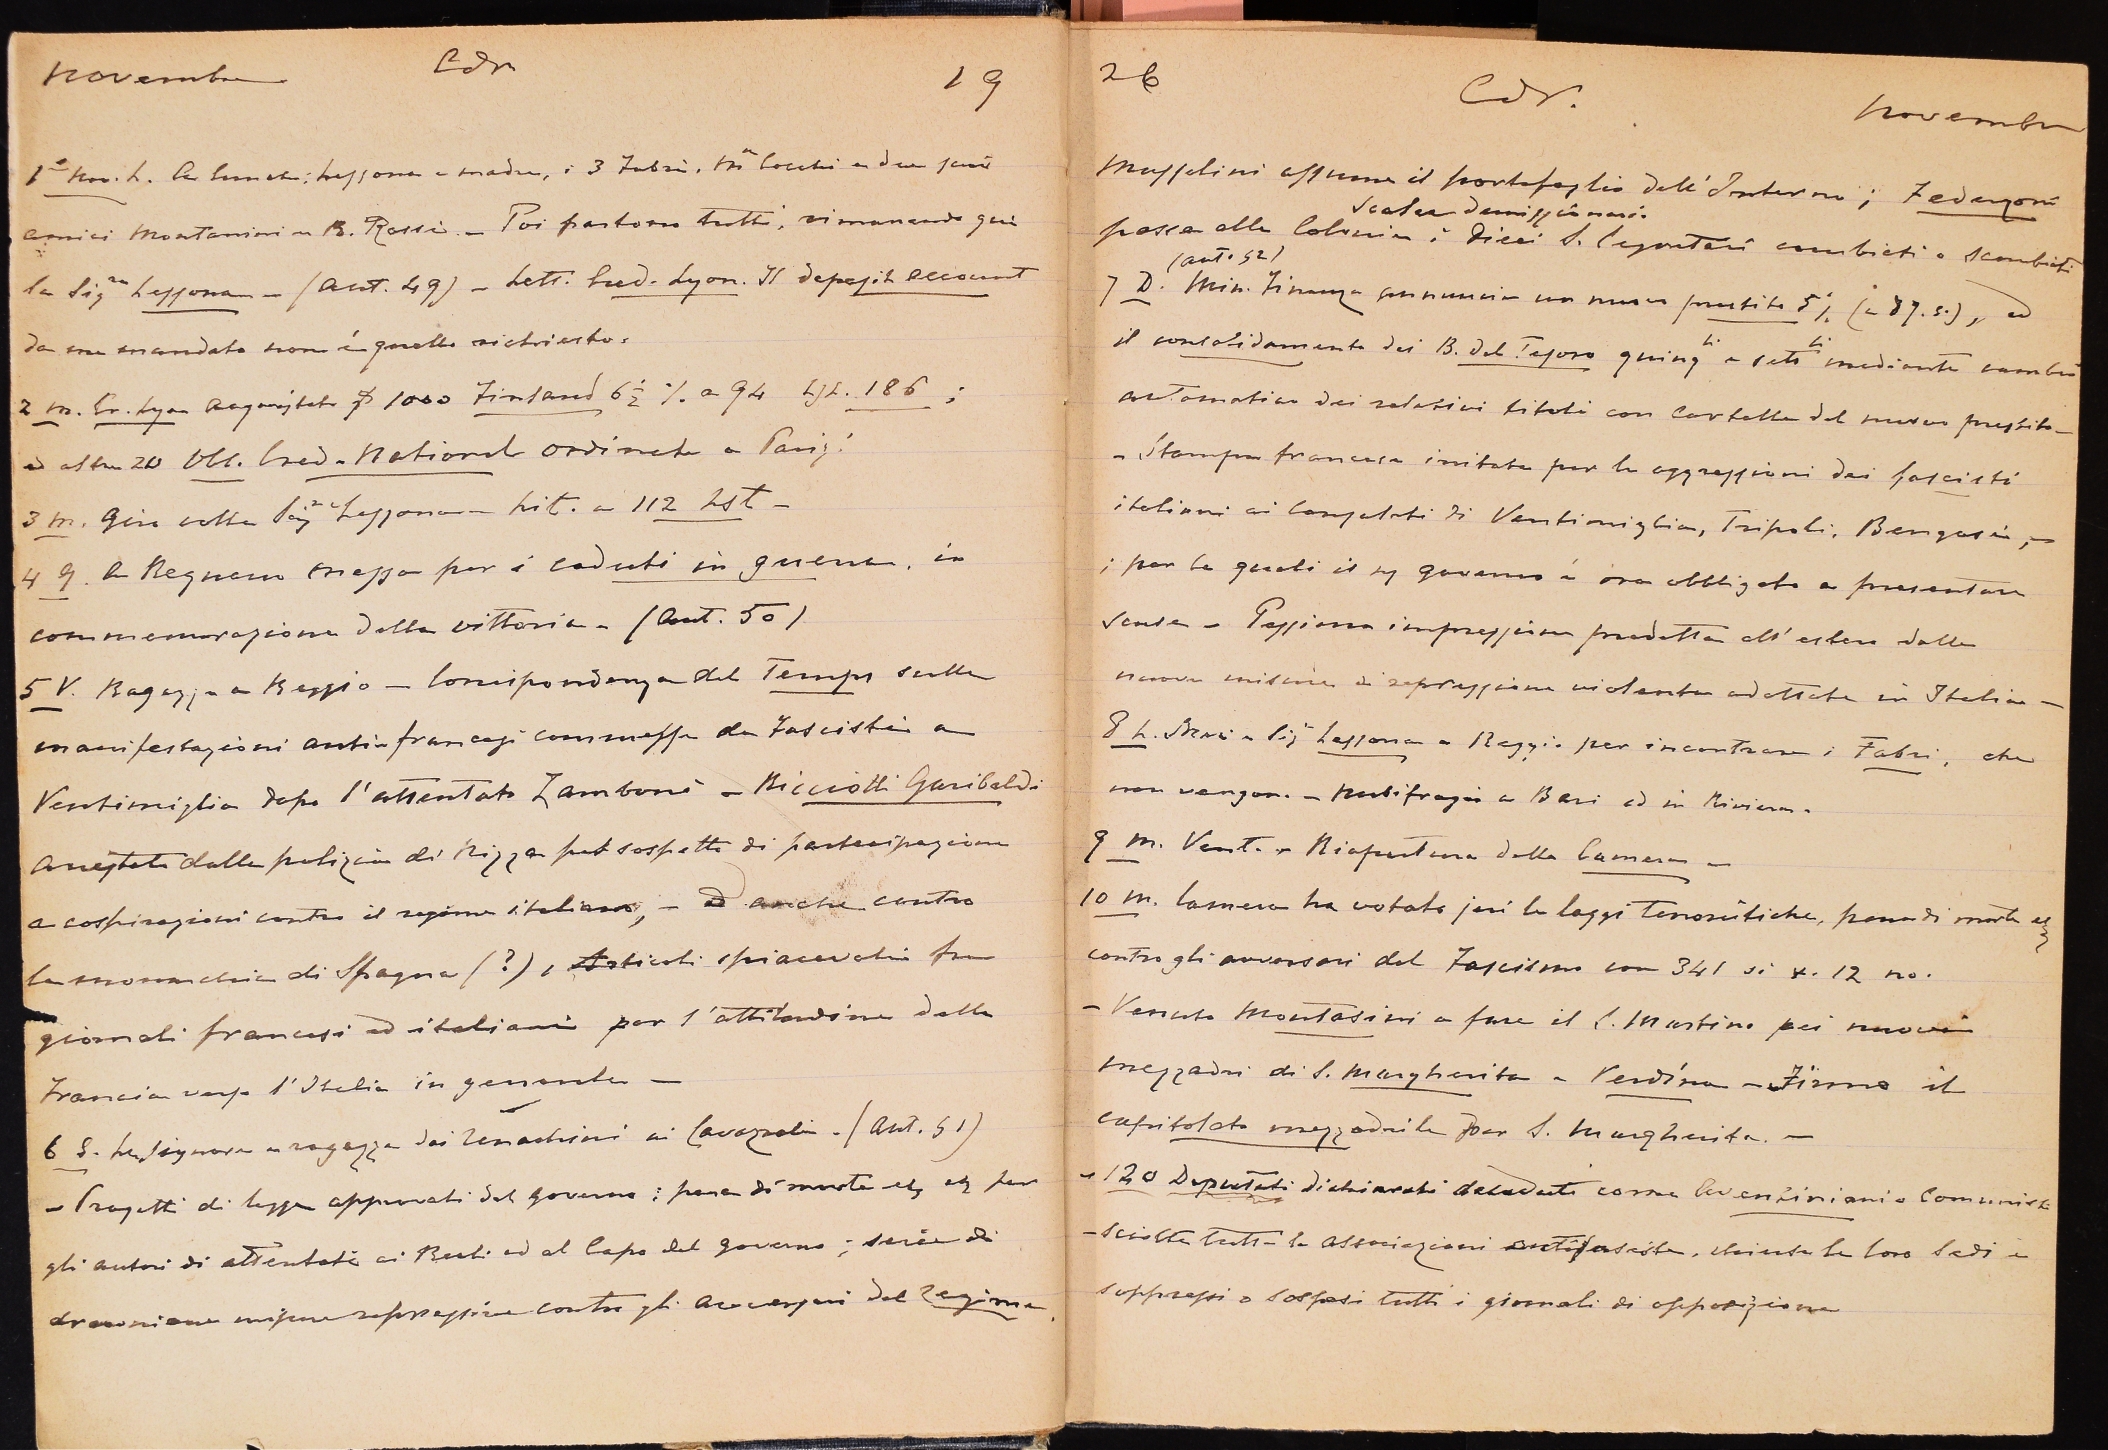 novembre Cdr 19
1° nov. L. A lunch: Lessona e madre, i 3 Fabri, e due
amici Montanini e B. Rossi. – Poi partono tutti, rimanendo qui
la Sig.ra Lessona – (Aut. 49) – Lett. Cred. Lyon. Il deposit account
da me mandato non è quello richiesto.
2 m. Cr. Lyon acquistato 1000 Finland 6½ % a 94 Lst. 186 ;
ed altre 20 Obl. Cred. National ordinate a Parigi
3 m. Giro colla Sig.ra Lessona – Lit. a 112 Lst –
4 g. A messa per i caduti in guerra, in
commemorazione della vittoria – (Aut. 50)
5 V. Ragazze a Reggio – Corrispondenza del Temps sulle
manifestazioni anti-francesi commesse da Fascisti a
Ventimiglia dopo l'attentato Zamboni – Ricciotti Garibaldi
arrestato dalla polizia di Nizza pel sospetto di partecipazione
a cospirazioni contro il regime italiano, – ed anche contro
la monarchia di Spagna (?), Articoli spiacevoli fra
giornali francesi ed italiani per l'attitudine della
Francia verso l'Italia in generale –
6 S. La signora e ragazze dai ai Cavazzoli – (Aut. 51)
– Progetti di legge approvati dal governo : pena di morte etc etc per
gli autori di attentati ai Reali ed al Capo del governo ; serie di
draconiane misure repressive contro gli avversari del Regime.
26 Cdr. novembre
Mussolini assume il portafoglio dell'Interno ; Federzoni
passa alle Colonie ; dieci S. Segretari cambiati o scambiati
(Aut. 52)
7 D. Min. Finanze annuncia un nuovo prestito 5% (a 87.5), ed
il consolidamento dei B. del Tesoro quinq.li e sett.li mediante cambio
automatico dei relativi titoli con cartelle del nuovo prestito –
– Stampa francese irritata per le aggressioni dei fascisti
italiani ai Consolati di Ventimiglia, Tripoli, Bengasi, –
; per le quali il governo è ora obbligato a presentare
scuse – Pessima impressione prodotta all'estero dalle
nuove misure di repressione violenta adottate in Italia –
8 L. Sig.ra Lessona a Reggio per incontrare i Fabri, che
non vengono. – Nubifragio a Bari ed in Riviera.
9 m. Vent. – Riapertura della Camera –
10 m. Camera ha votato jeri le leggi terroristiche, pena di morte etc
contro gli avversari del Fascismo con 341 si v. 12 no.
– Venuto Montasini a fare il S. Martino pei nuovi
mezzadri di S. Margherita – Verdina – Firmo il
capitolato mezzadrile per S. Margherita. –
– 120 Deputati dichiarati decaduti come Aventiniani o Comunisti
– sciolte tutte le associazioni antifasciste, chiuse le loro Sedi e
soppressi o sospesi tutti i giornali di opposizione